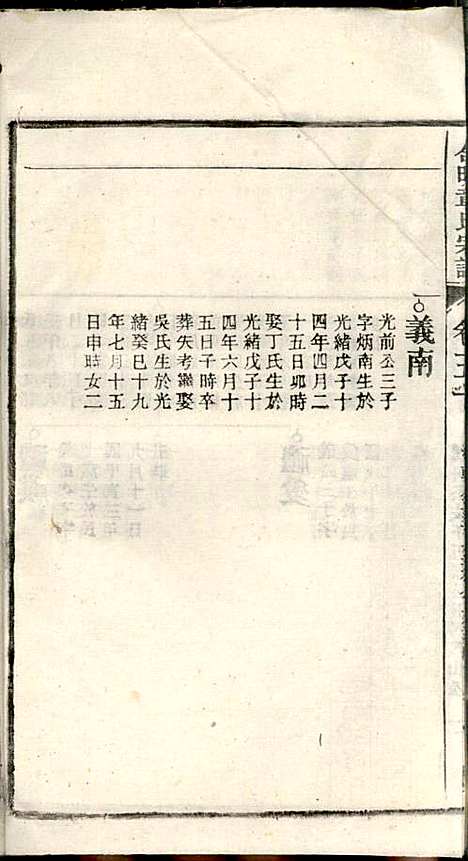 義南
光前公三子
字炳南生於
光緒戊子十
四年四月二
十五日卯時
娶丁氏生於
光緒戊子十
四年六月十
五日子時卒
葬失考繼娶
吳氏生於光
緒癸巳十九
年七月十五
日申時女二